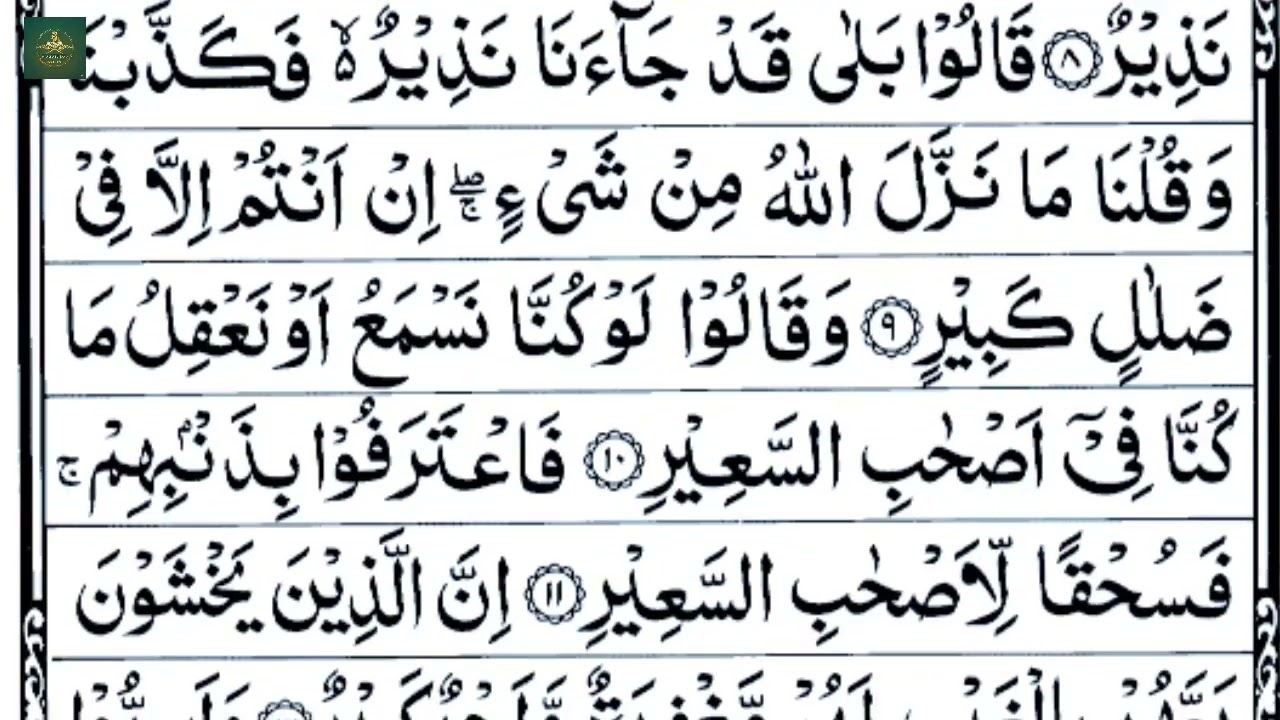 نَذِيْرٌ ۝٨ قَالُوْا بَلٰى قَدْ جَآءَنَا نَذِيْرٌ ۙ۬ فَكَذَّبْنَا
وَقُلْنَا مَا نَزَّلَ اللّٰهُ مِنْ شَىْءٍ ۖۚ اِنْ اَنْتُمْ اِلَّا فِىْ
ضَلٰلٍ كَبِيْرٍ ۝٩ وَقَالُوْا لَوْ كُنَّا نَسْمَعُ اَوْ نَعْقِلُ مَا
كُنَّا فِىْٓ اَصْحٰبِ السَّعِيْرِ ۝١٠ فَاعْتَرَفُوْا بِذَنْۢبِهِمْ ۚ
فَسُحْقًا لِّاَصْحٰبِ السَّعِيْرِ ۝١١ اِنَّ الَّذِيْنَ يَخْشَوْنَ